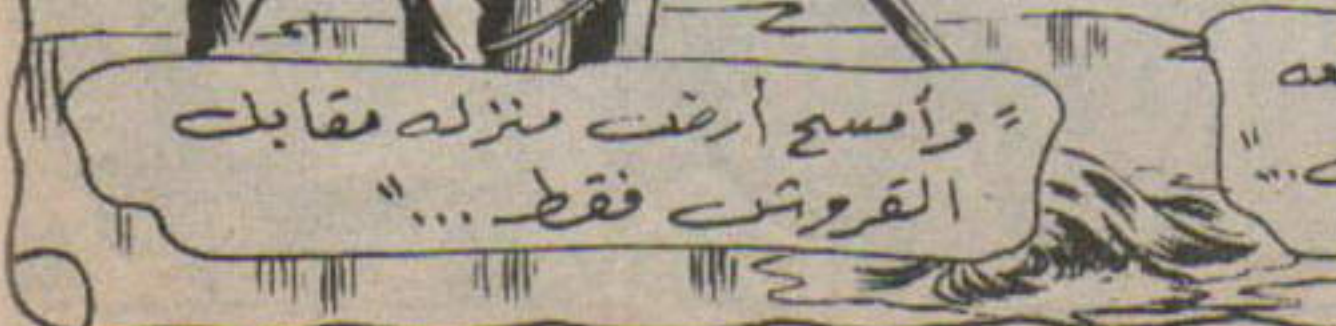 "وأمسح أرض منزله مقابل
القروش فقط..."